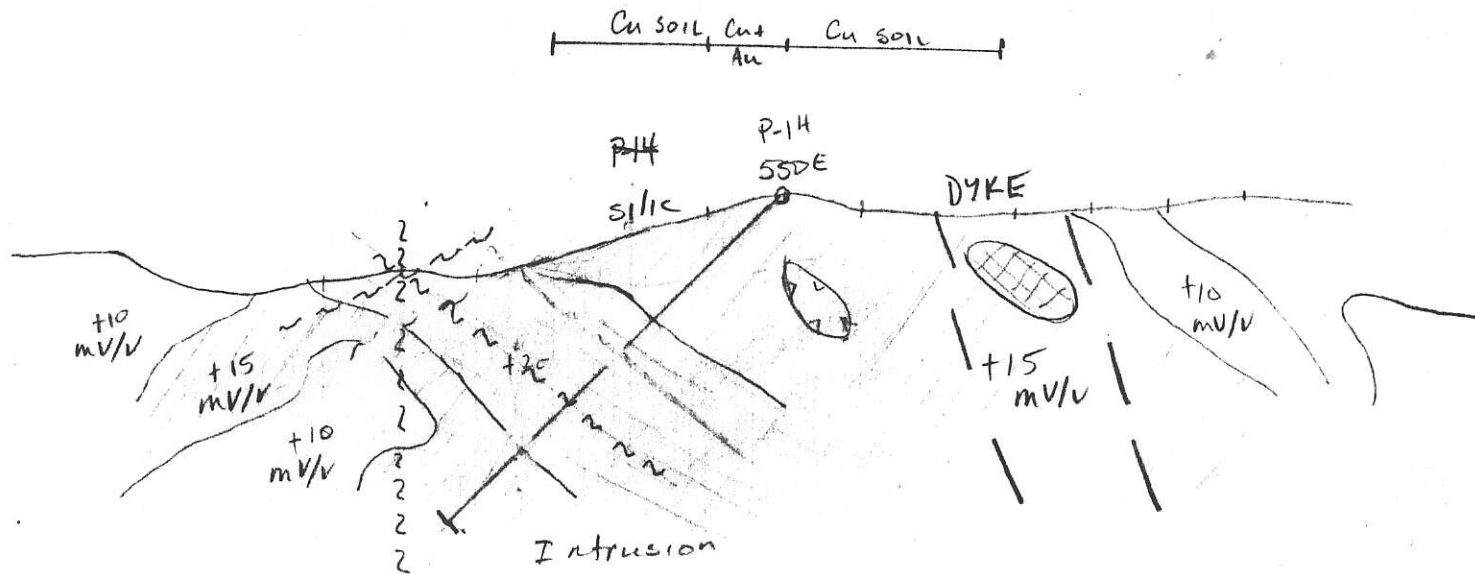 Cu SOIL Cu+ Cu SOIL
Au
P-14
P-14
550E
SIlIC
DYKE
+10
mV/V
+15
mV/V
+10
mV/V
+15
mV/V
+10
mV/V
Intrusion